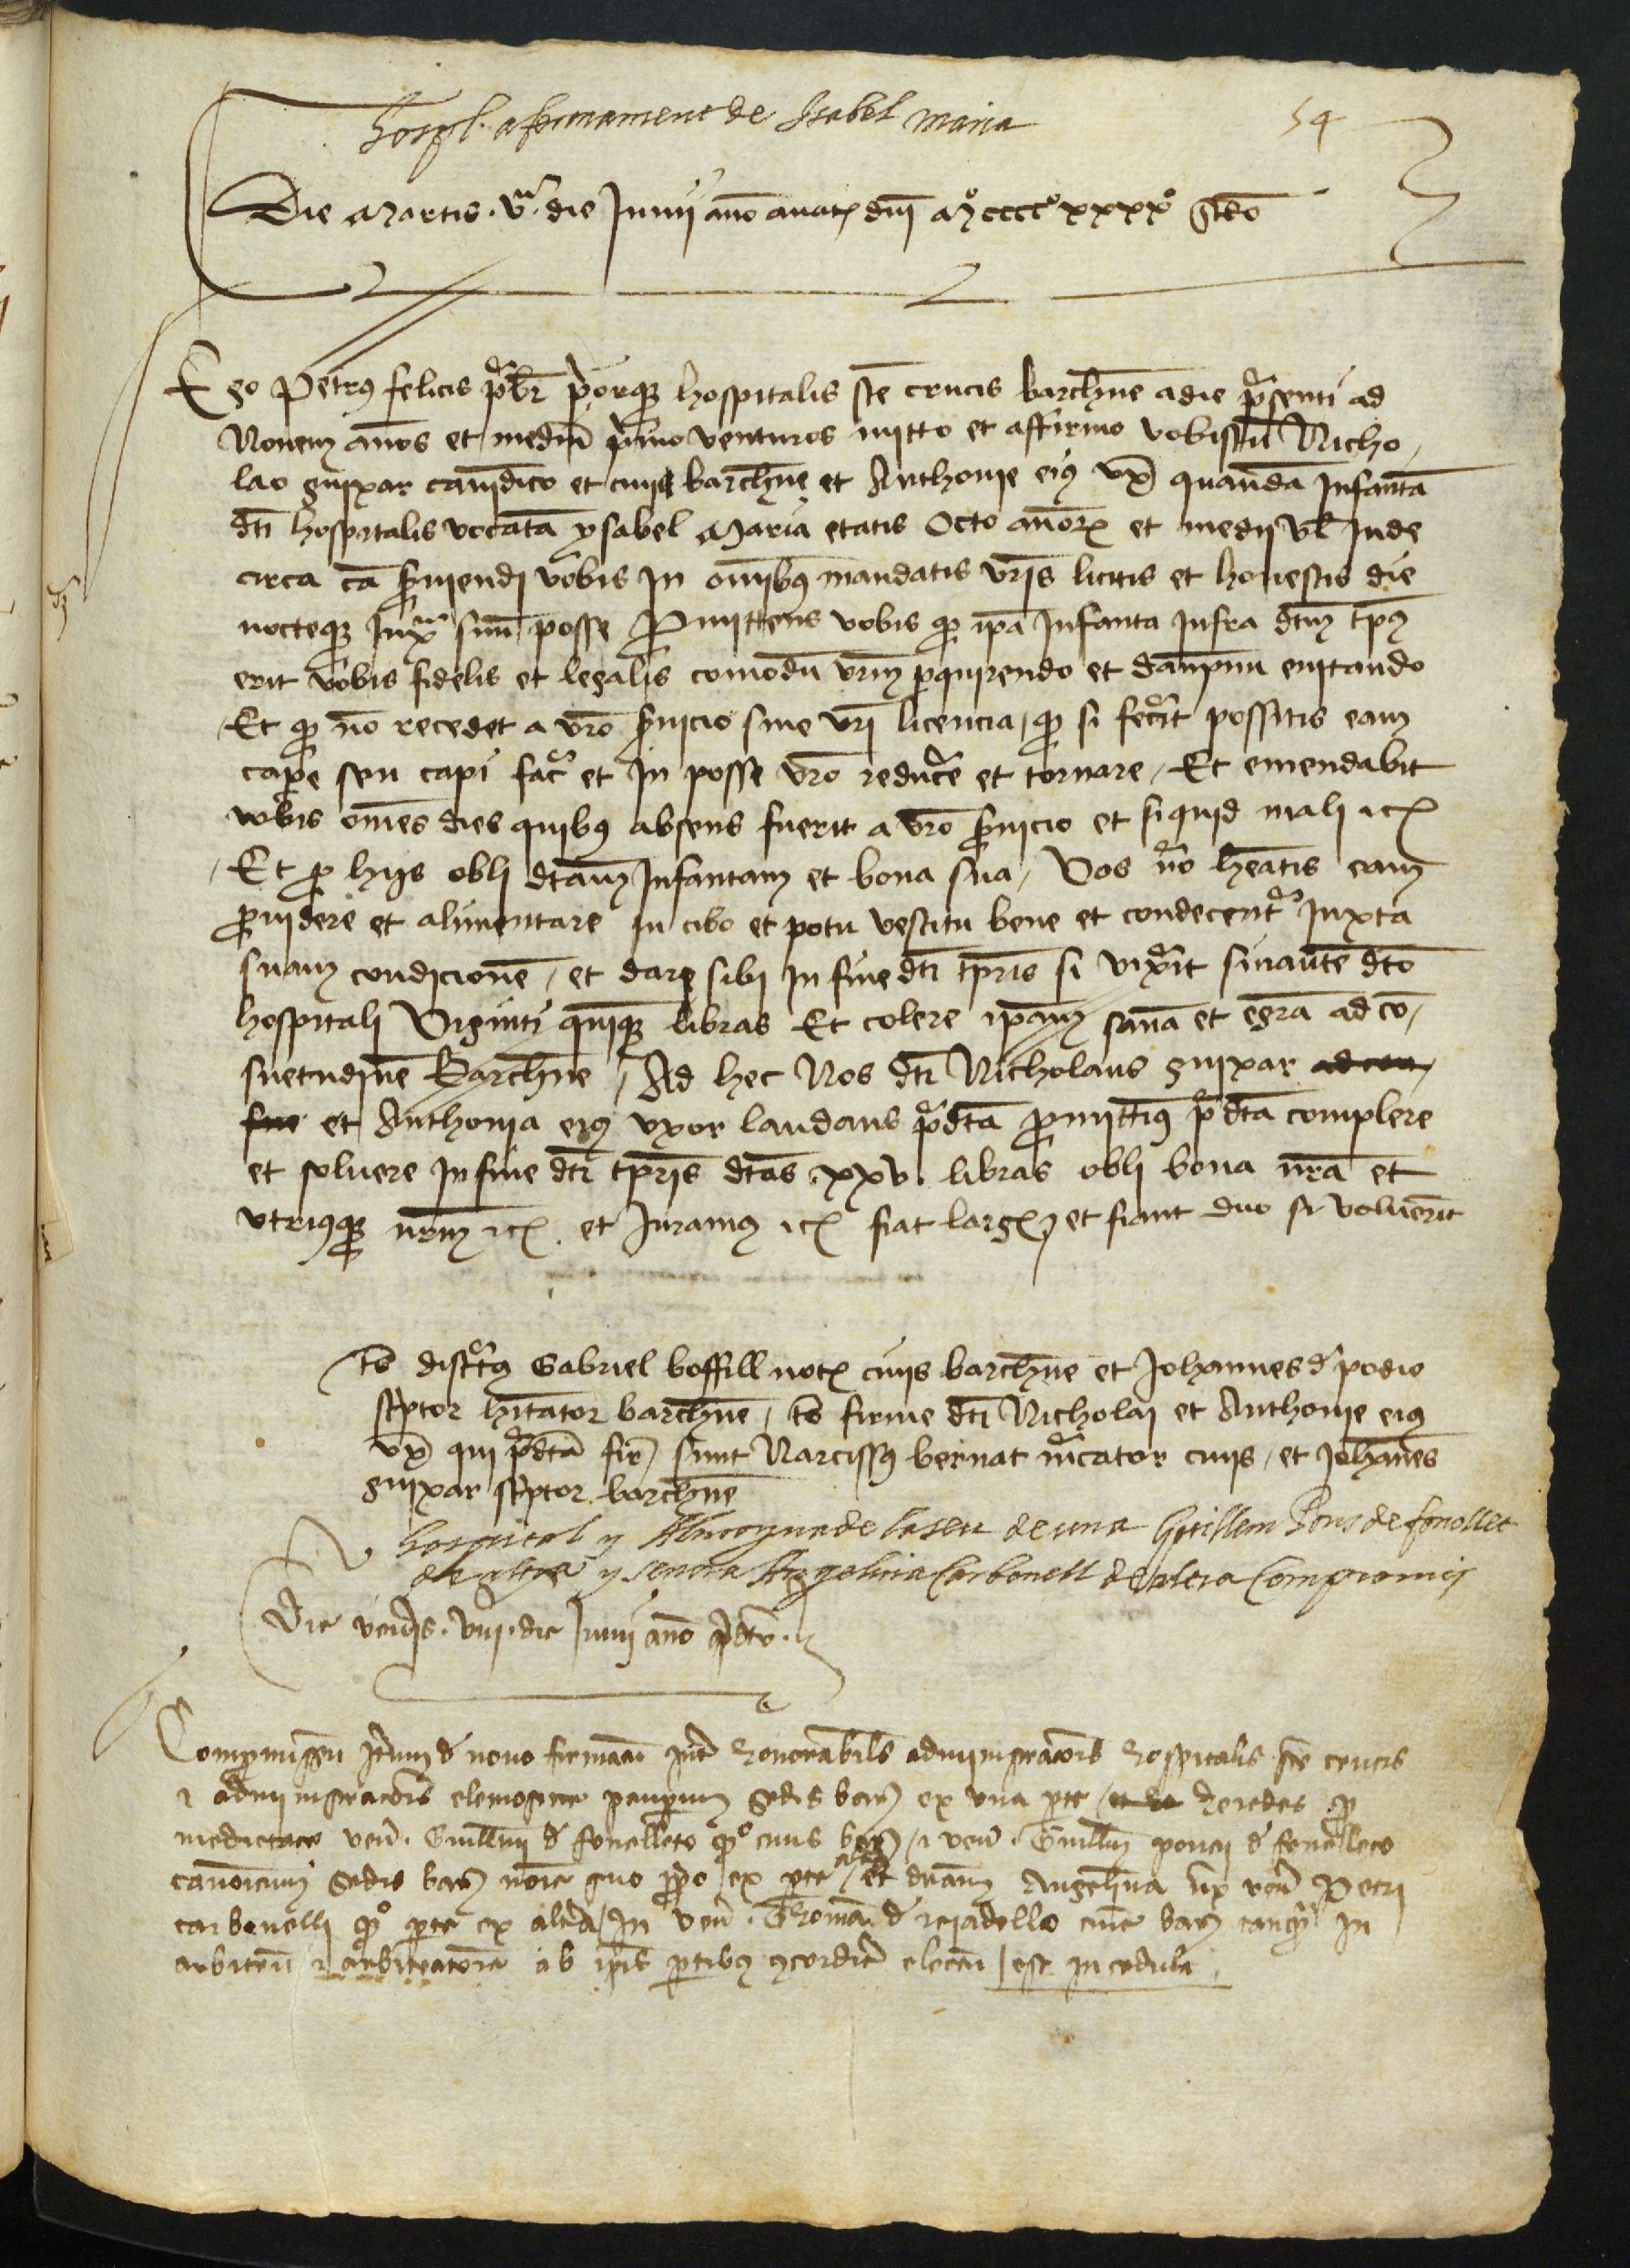 Hospl. afermament de Isabel Maria
54
Die Martis .va. die Junij anno anatx dni Mo ccccº xxxxº scdo
Ego Petrus felicis pbr priorque hospitalis ste crucis barchne a die presenti ad
Novem annos et mediu primo venturos mitto et affirmo vobiscu Nicho
lao guixar causidico et civis barchne et Anthonie eius ux quanda Infanta
dti hospitalis vocata ysabel Maria etatis Octo annorx et medij vl Inde
circa ca serviendi vobis in omibus mandatis vris licitis et honestis die
nocteque Juxta suu posse Promittens vobis quod ipa Infanta Infra dtm tps
erit vobis fidelis et legalis comodu vrm perquirendo et dampnu evitando
Et quod no recedet a vro servicio sine vri licencia, quod si fecerit possitis eam
capere seu capi facere et in posse vro reducere et tornare, Et emendabit
vobis omes dies quibus absens fuerit a vro servicio et siquid mali etc
Et pro hijs obli dtam Infantam et bona sua, Vos vero heatis eam
providere et alimentare in cibo et potu vestitu bene et condecenter Juxta
suam condicione, et dare sibi in fine dti tpris si vixerit sinaute dto
hospitali Viginti quinque libras Et colere ipam sana et egra ad co
suetudine Barchne, Ad hec Nos dti Nicholaus guixar ad con
sue et Anthonia eius uxor laudans predta promittimus predta complere
et solvere in fine dti tpris dtas .xxv. libras obli bona nra et
utriusque nrm etc. et Juramus etc fiat largx et fiant duo si voluerit
ts discretus Gabriel boffill notx civis barchne et Johannes de podio
scriptor hitator barchne, ts firme dti Nicholai et Anthonie eius
ux qui predta fir sunt Narcissus bernat mercator civis, et Johanes
guixar scriptor barchne
Hospital y Almoyna de la seu de una Guillem Pons de fonollet
de altra y senora Angelina Carbonell de altra Compromis
Die veneris .viij. die Junij anno predto
Compromissu iterum de novo firmatu inter honorabiles administratores hospitalis ste crucis
et administratores elemosine pauperum Sedis barx ex una parte, et de heredes pro
medietate ven. Guillmi de fonolleto quo civis barx, et ven. Guillm poncij de fonolleto
canonicum Sedis barx noie suo proprio ex parte altera et dnam Angelina ux ven Petri
carbonelli quo parte ex altera, In ven. Thomam de rejadello cive barx tanqm in
arbitru et arbitratore ab ipis partibus concorditer electu, est in cedula